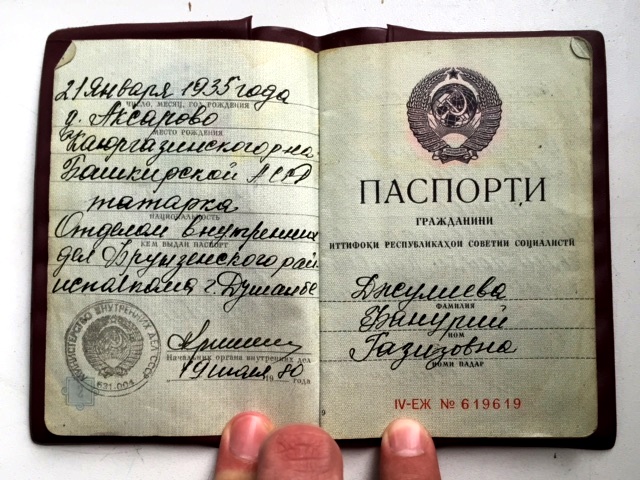 21 Января 1935 года
ЧИСЛО, МЕСЯЦ, ГОД РОЖДЕНИЯ
Аксарово
МЕСТО РОЖДЕНИЯ
района
Башкирской АССР
татарка
НАЦИОНАЛЬНОСТЬ
Отделом внутренних
КЕМ ВЫДАН ПАСПОРТ
дел Фрунзенского рай
исполкома г. Душанбе
МИНИСТЕРСТВО ВНУТРЕННИХ ДЕЛ СССР
631 004
Начальник органа внутренних дел
19 мая 1980 года
ПАСПОРТИ
ГРАЖДАНИНИ
ИТТИФОҚИ РЕСПУБЛИКАҲОИ СОВЕТИИ СОЦИАЛИСТӢ
Джулиева
ФАМИЛИЯ
Фанурий
НОМ
Газизовна
НОМИ ПАДАР
IV-ЕЖ № 619619
9